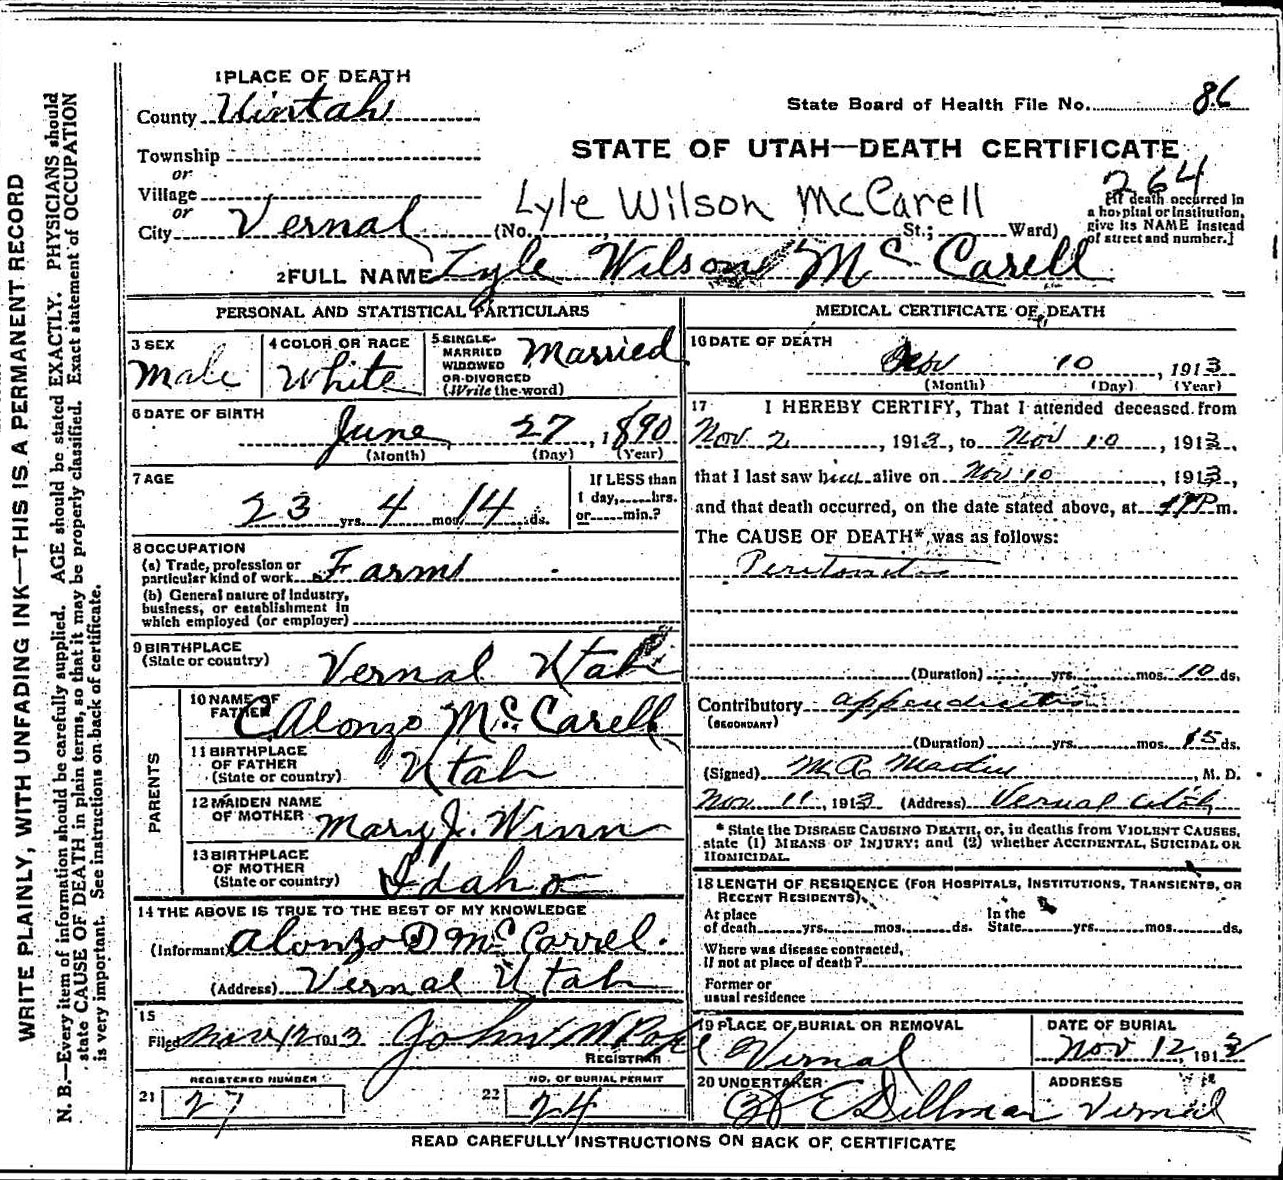 WRITE PLAINLY, WITH UNFADING INK—THIS IS A PERMANENT RECORD
N. B.—Every item of information should be carefully supplied. AGE should be stated EXACTLY. PHYSICIANS should
state CAUSE OF DEATH in plain terms, so that it may be properly classified. Exact statement of OCCUPATION
is very important. See instructions on back of certificate.
1 PLACE OF DEATH
County Uintah
State Board of Health File No. 86
Township
or
Village
or
City Vernal
STATE OF UTAH—DEATH CERTIFICATE
264
Lyle Wilson McCarell
(No. , St.; Ward)
[If death occurred in
a hospital or institution,
give its NAME instead
of street and number.]
2 FULL NAME Lyle Wilson Mc Carell
PERSONAL AND STATISTICAL PARTICULARS
3 SEX
Male
4 COLOR OR RACE
White
5 SINGLE,
MARRIED
WIDOWED
OR DIVORCED
(Write the word)
Married
6 DATE OF BIRTH
June 27, 1890
(Month) (Day) (Year)
7 AGE
23 yrs. 4 mos. 14 ds.
If LESS than
1 day, hrs.
or min.?
8 OCCUPATION
(a) Trade, profession or
particular kind of work Farms
(b) General nature of industry,
business, or establishment in
which employed (or employer)
9 BIRTHPLACE
(State or country) Vernal Utah
PARENTS
10 NAME OF
FATHER Alonzo Mc Carell
11 BIRTHPLACE
OF FATHER
(State or country) Utah
12 MAIDEN NAME
OF MOTHER Mary J. Winn
13 BIRTHPLACE
OF MOTHER
(State or country) Idaho
14 THE ABOVE IS TRUE TO THE BEST OF MY KNOWLEDGE
(Informant) Alonzo D Mc Carrel.
(Address) Vernal Utah
15
Filed Nov 12 1913 John W Pope
REGISTRAR
REGISTERED NUMBER
21 27
NO. OF BURIAL PERMIT
22 24
MEDICAL CERTIFICATE OF DEATH
16 DATE OF DEATH
Nov 10, 1913
(Month) (Day) (Year)
17 I HEREBY CERTIFY, That I attended deceased from
Nov 2, 1913, to Nov 10, 1913,
that I last saw him alive on Nov 10, 1913,
and that death occurred, on the date stated above, at m.
The CAUSE OF DEATH* was as follows:
Peritonitis
(Duration) yrs. mos. 10 ds.
Contributory appendicitis
(SECONDARY)
(Duration) yrs. mos. 15 ds.
(Signed) M. D.
Nov 11, 1913 (Address) Vernal Utah
* State the DISEASE CAUSING DEATH, or, in deaths from VIOLENT CAUSES,
state (1) MEANS OF INJURY; and (2) whether ACCIDENTAL, SUICIDAL OR
HOMICIDAL.
18 LENGTH OF RESIDENCE (FOR HOSPITALS, INSTITUTIONS, TRANSIENTS, OR
RECENT RESIDENTS).
At place
of death yrs. mos. ds.
In the
State yrs. mos. ds.
Where was disease contracted,
If not at place of death?
Former or
usual residence
19 PLACE OF BURIAL OR REMOVAL
Vernal
DATE OF BURIAL
Nov 12, 1913
20 UNDERTAKER
E Dillman
ADDRESS
Vernal
READ CAREFULLY INSTRUCTIONS ON BACK OF CERTIFICATE